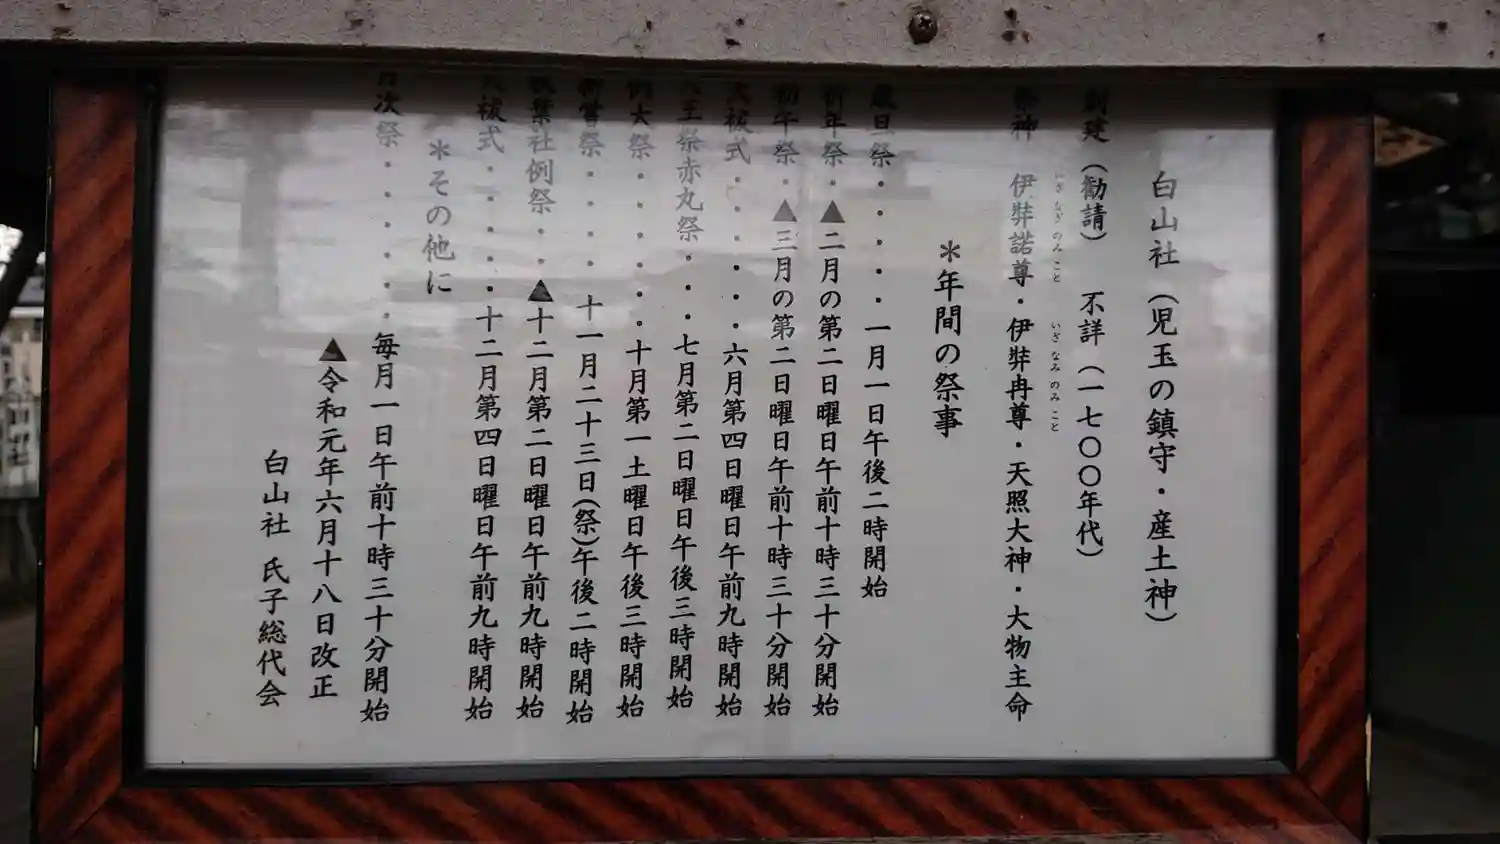 白山社（児玉の鎮守・産土神）
創建（勧請）　不詳（一七〇〇年代）
祭神　伊弉諾尊・伊弉冉尊・天照大神・大物主命
いざ なぎ のみ こと
いざ なみ のみ こと
＊年間の祭事
歳旦祭・・・・・一月一日午後二時開始
祈年祭・▲二月の第二日曜日午前十時三十分開始
初午祭・▲三月の第二日曜日午前十時三十分開始
大祓式・・・・・・六月第四日曜日午前九時開始
天王祭赤丸祭・・・七月第二日曜日午後三時開始
例大祭・・・・・・十月第一土曜日午後三時開始
新嘗祭・・・・十一月二十三日（祭）午後二時開始
秋葉社例祭・・▲十二月第二日曜日午前九時開始
大祓式・・・・・十二月第四日曜日午前九時開始
＊その他に
月次祭・・・・・・毎月一日午前十時三十分開始
▲令和元年六月十八日改正
白山社 氏子総代会